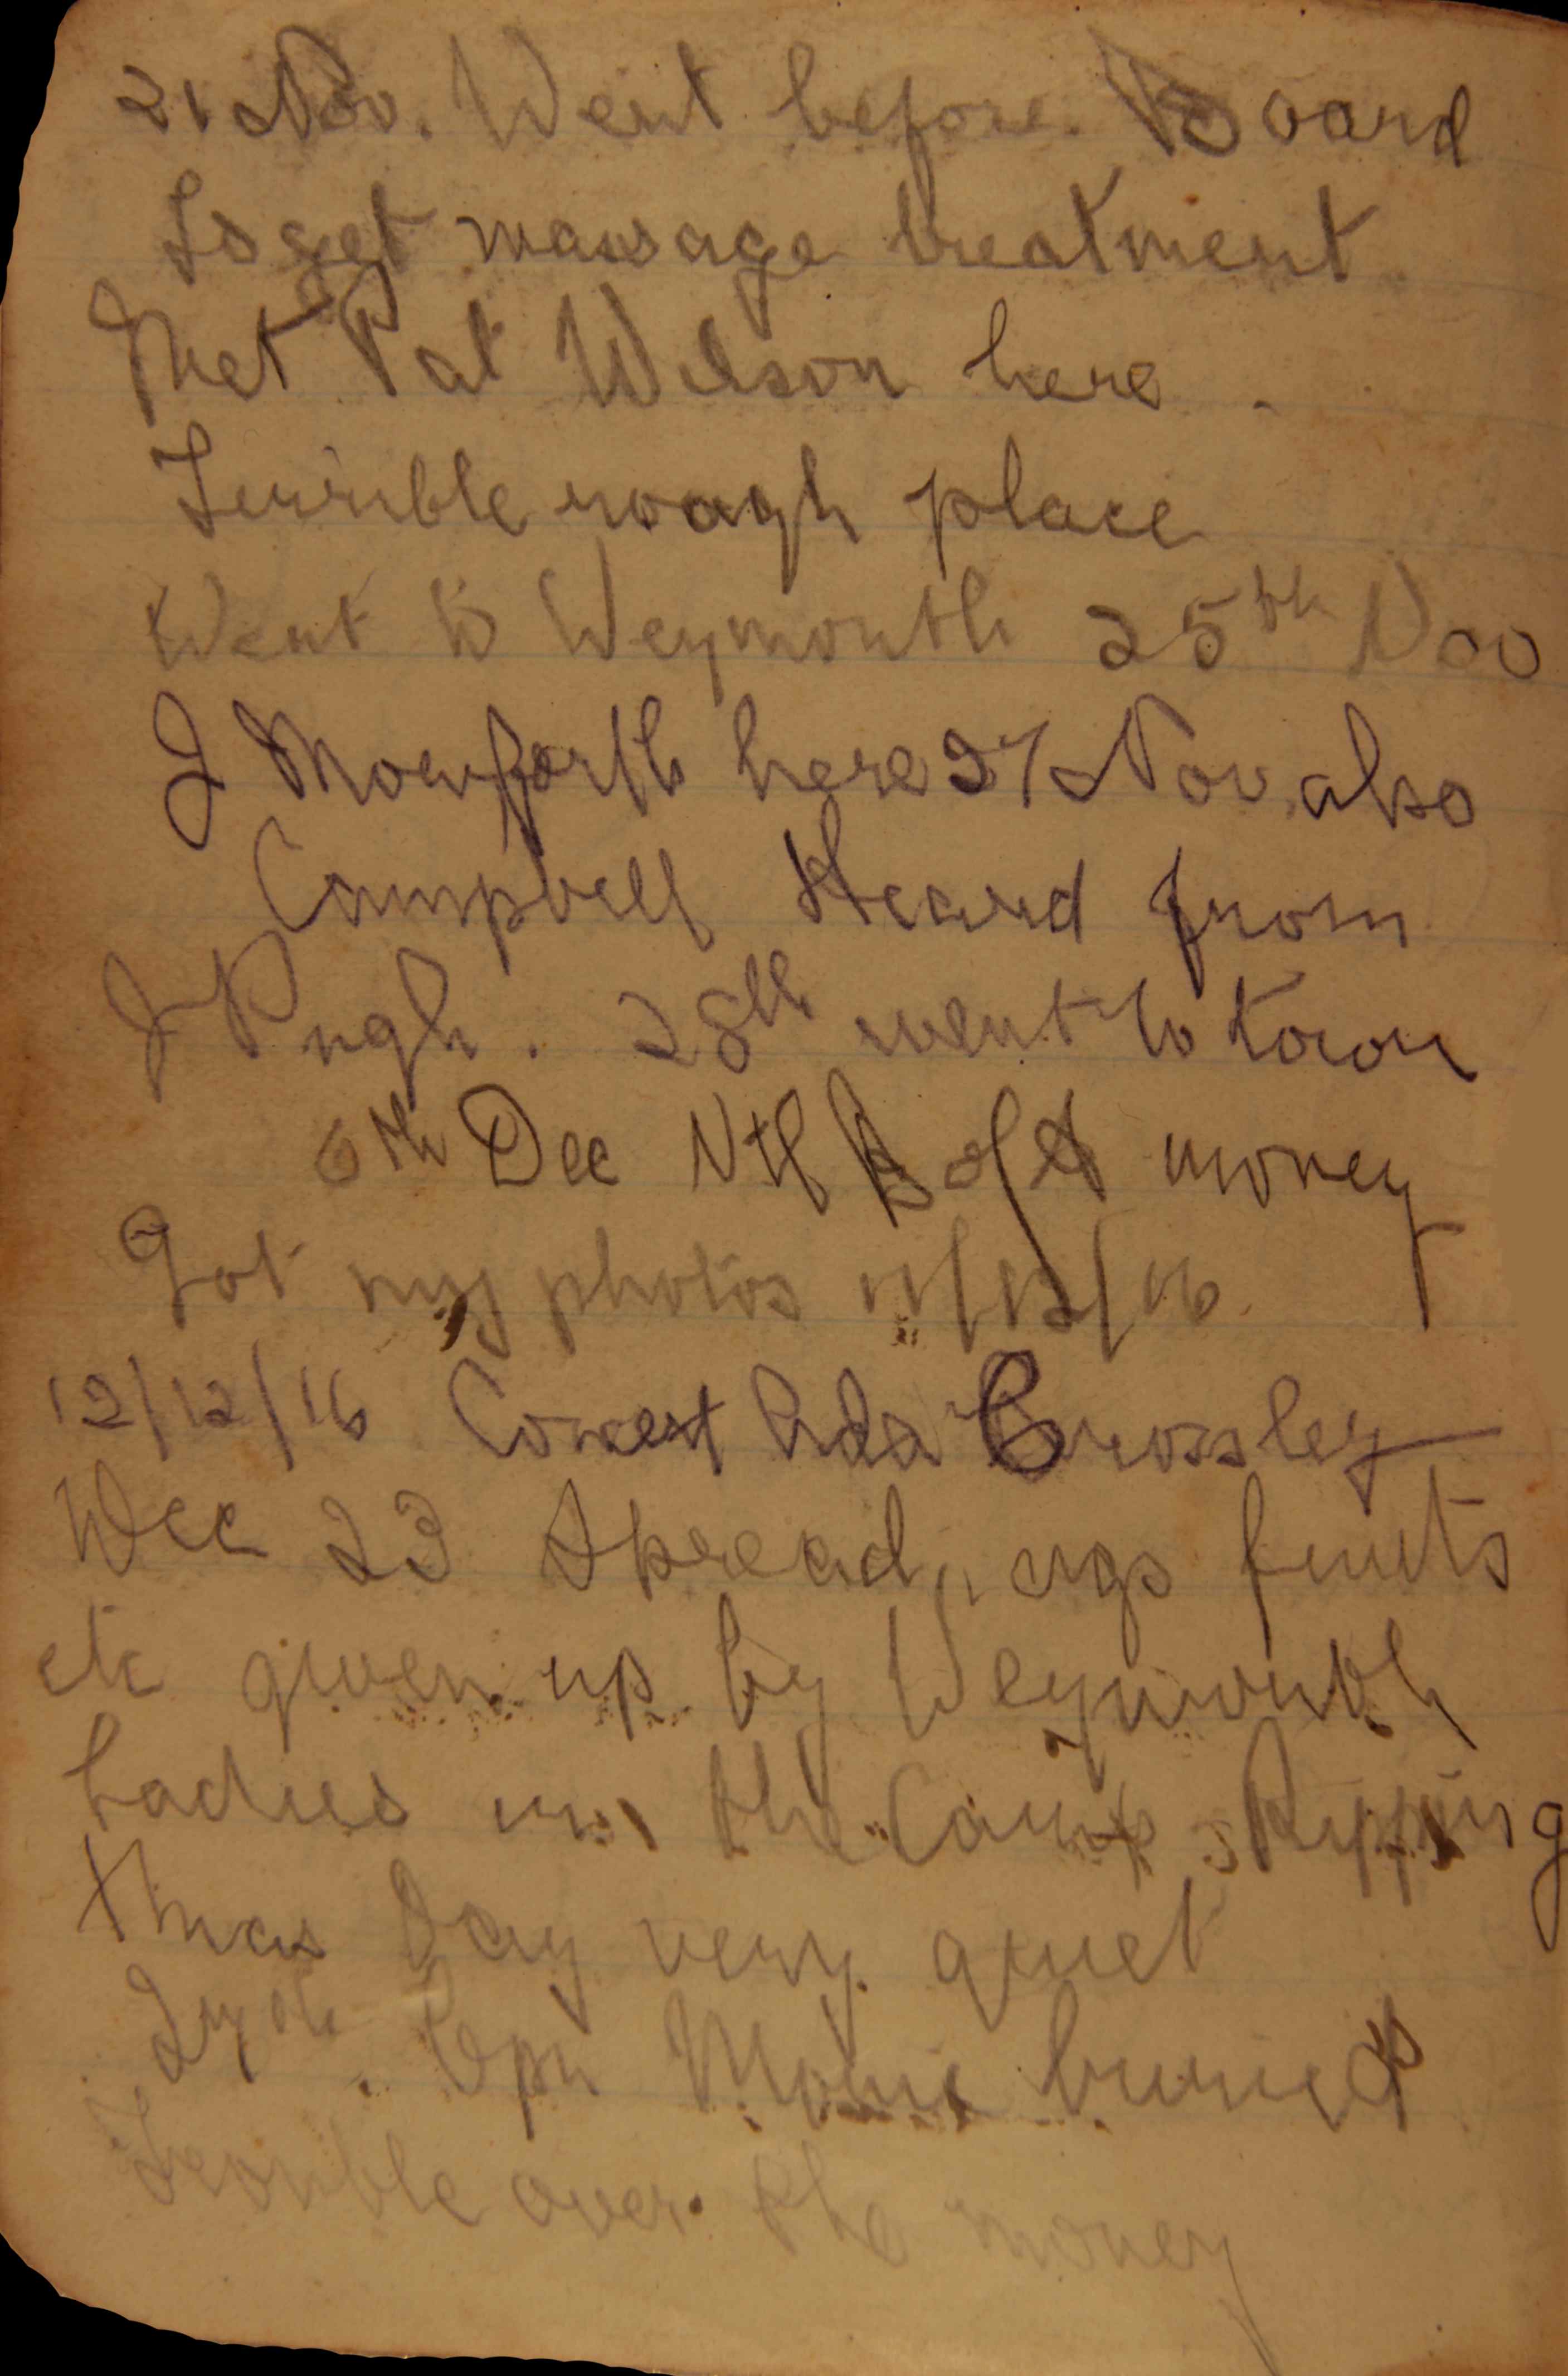 21 Nov. Went before Board
To get massage treatment
Met Pat Wilson here.
Terrible rough place
Went to Weymouth 25th Nov
J Mowforth here 27 Nov also
Campbell Heard from
J Pugh. 28th went to town
6th Dec Ntf B of A money
Got my photos 11/12/16
12/12/16 Concert Ada Crossley
Dec 23 Spread, cigs fruits
etc given up by Weymouth
Ladies in the Camp, Ripping
Xmas Day very quiet
27th. buried
Trouble over the money